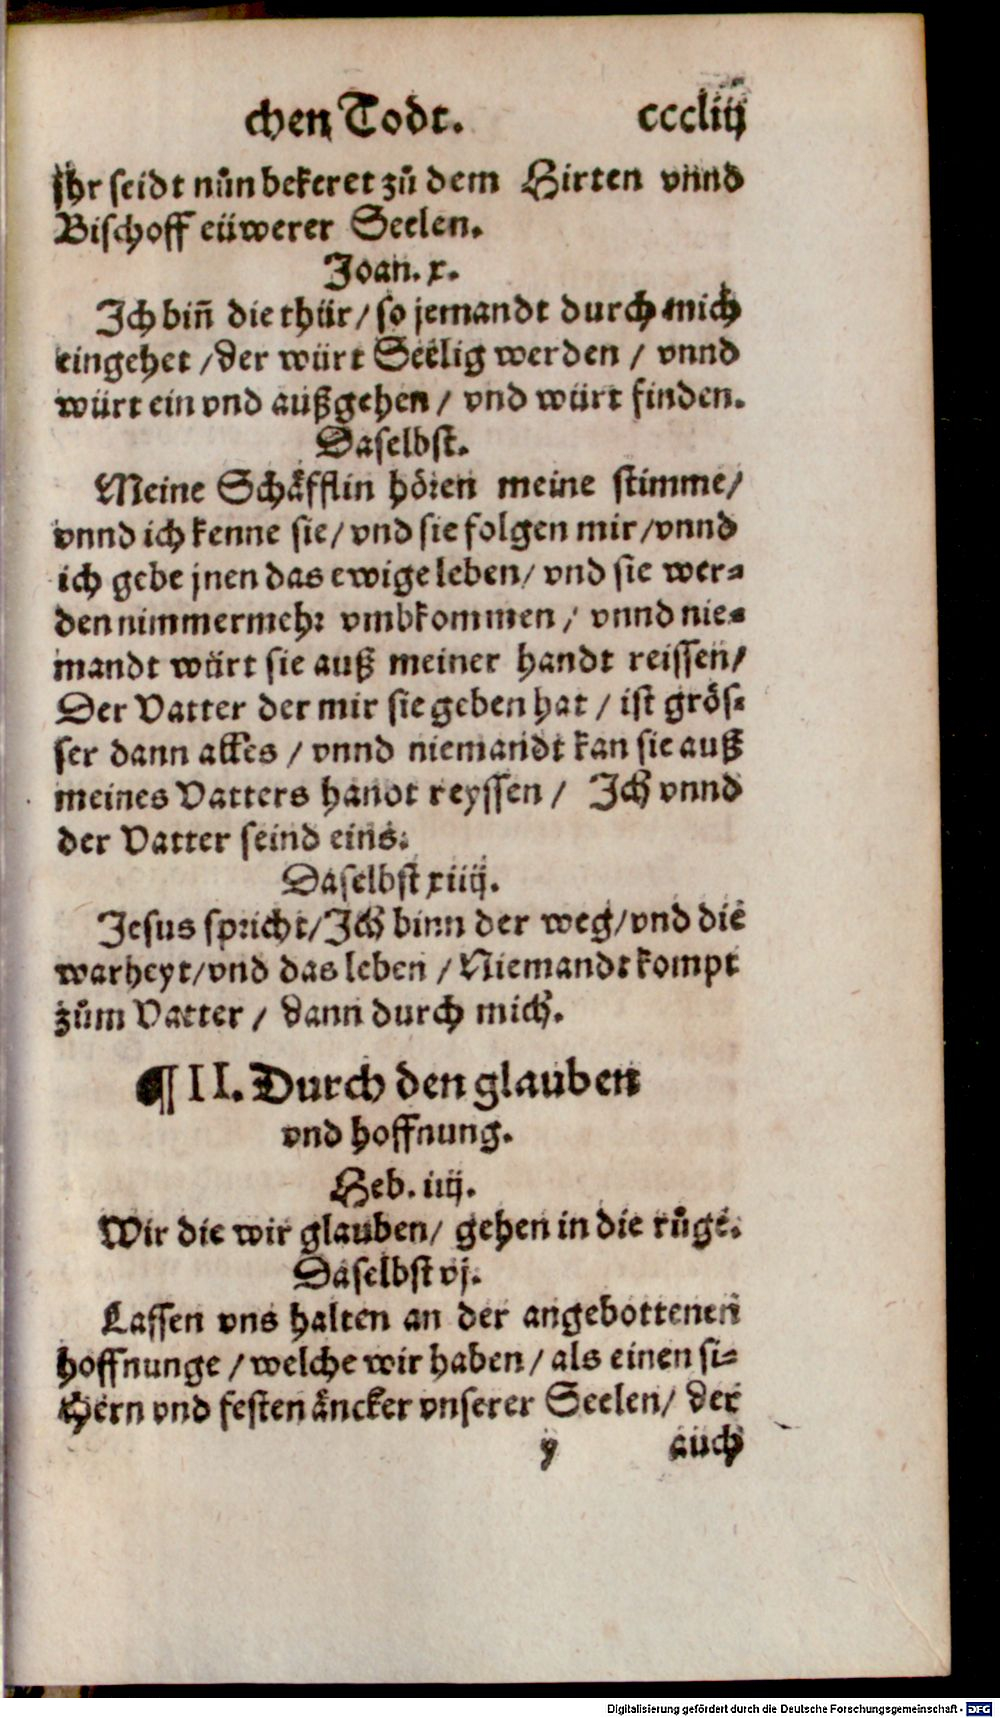 chen Todt. cccliij
Ihr seidt nůn bekeret zů dem Hirten vnnd
Bischoff eüwerer Seelen.
Joan. x.
Ich biñ die thür / so jemandt durch mich
eingehet / der würt Seelig werden / vnnd
würt ein vnd außgehen / vnd würt finden.
Daselbst.
Meine Schäfflin hören meine stimme /
vnnd ich kenne sie / vnd sie folgen mir / vnnd
ich gebe jnen das ewige leben / vnd sie wer-
den nimmermehr vmbkommen / vnnd nie-
mandt würt sie auß meiner handt reissen /
Der Vatter der mir sie geben hat / ist grös-
ser dann alles / vnnd niemandt kan sie auß
meines Vatters handt reyssen / Ich vnnd
der Vatter seind eins.
Daselbst xiiij.
Jesus spricht / Ich binn der weg / vnd die
warheyt / vnd das leben / Niemandt kompt
zům Vatter / dann durch mich.
¶ II. Durch den glauben
vnd hoffnung.
Heb. iiij.
Wir die wir glauben / gehen in die růge.
Daselbst vj.
Lassen vns halten an der angebottenen
hoffnunge / welche wir haben / als einen si-
chern vnd festen äncker vnserer Seelen / der
y auch
Digitalisierung gefördert durch die Deutsche Forschungsgemeinschaft - DFG